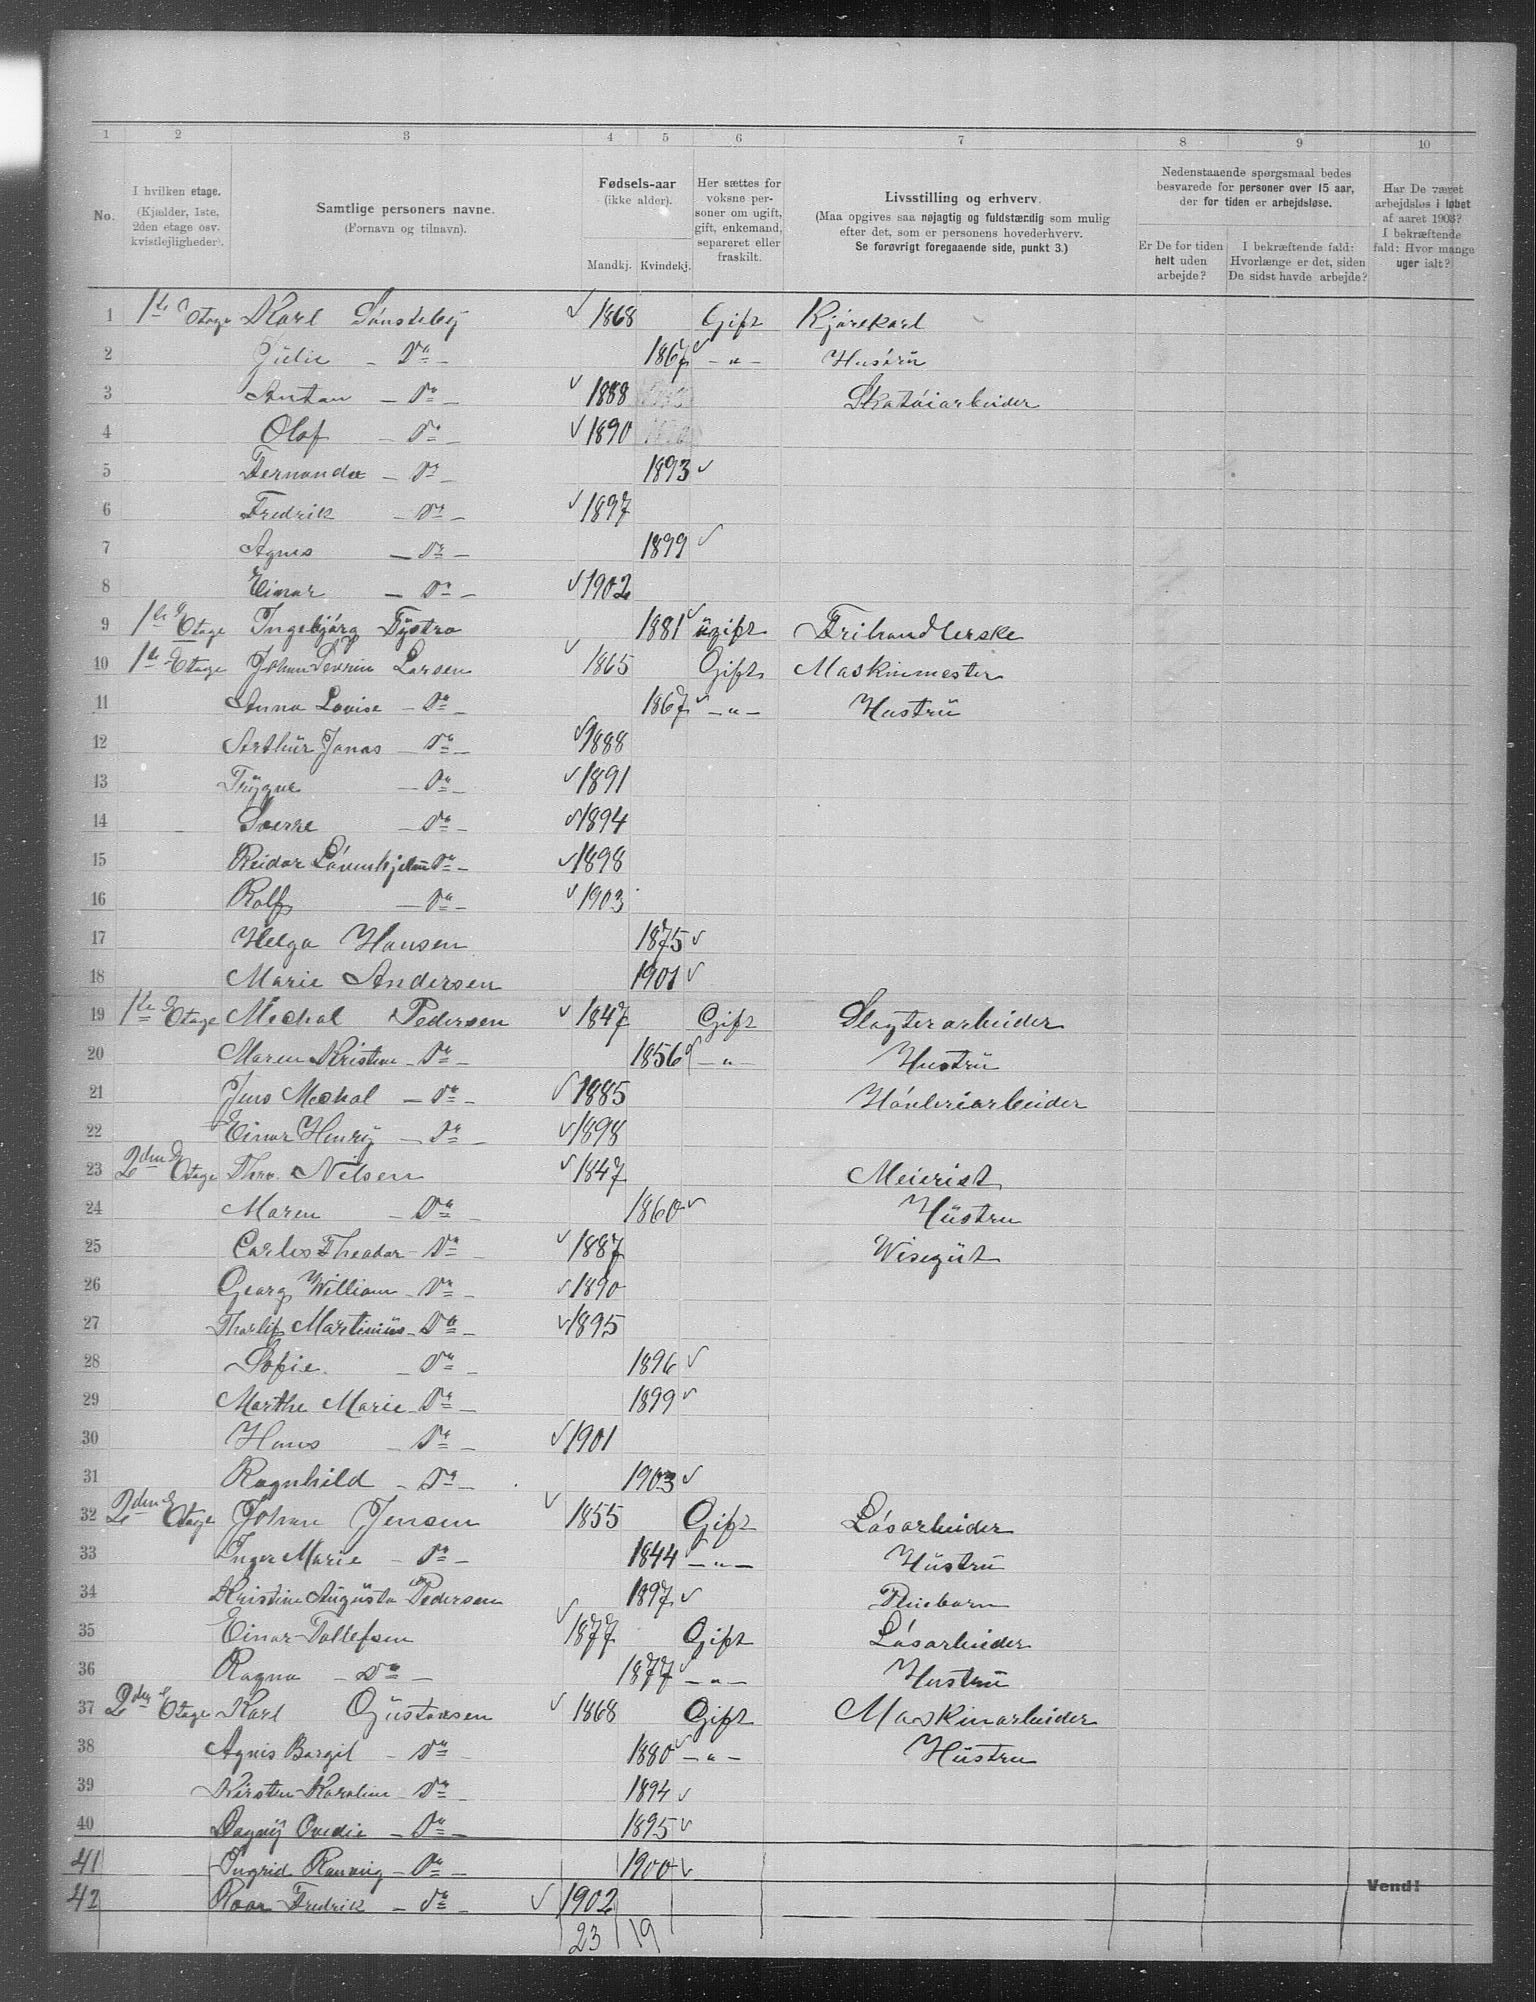 1 2 3 4 5 6 7 8 9 10
No. I hvilken etage. (Kjælder, 1ste, 2den etage osv. kvistlejligheder). Samtlige personers navne. (Fornavn og tilnavn). Fødsels-aar (ikke alder). Mandkj. Kvindekj. Her sættes for voksne personer om ugift, gift, enkemand, separeret eller fraskilt. Livsstilling og erhverv. (Maa opgives saa nøjagtig og fuldstændig som mulig efter det, som er personens hovederhverv. Se forøvrigt foregaaende side, punkt 3.) Nedenstaaende spørgsmaal bedes besvarede for personer over 15 aar, der for tiden er arbejdsløse. Er De for tiden helt uden arbejde? I bekræftende fald: Hvorlænge er det, siden De sidst havde arbejde? Har De været arbejdsløs i løbet af aaret 1903? I bekræftende fald: Hvor mange uger ialt?
1 1ste Etage Karl Sønsteby 1868 Gift Kjørekarl
2 Julie - Do - 1867 - " - Hustrü
3 Anton - Do - 1888 Skotøiarbeider
4 Olaf - Do - 1890
5 Fernanda - Do - 1893
6 Fredrik - Do - 1897
7 Agnes - Do - 1899
8 Einar - Do - 1902
9 1ste Etage Ingebjørg Tystra 1881 ügift Frihandlerske
10 1ste Etage Johan Severin Larsen 1865 Gift Maskinmester
11 Anna Lovise - Do - 1867 - " - Hustrü
12 Arthür Jonas - Do - 1888
13 Trÿgve - Do - 1891
14 Sverre - Do - 1894
15 Reidar Løvenhjelm Do - 1898
16 Rolf - Do - 1903
17 Helga Hansen 1875
18 Marie Andersen 1901
19 1ste Etage Mechal Pedersen 1847 Gift Slagterarbeider
20 Maren Kristine - Do - 1856 - " - Hustrü
21 Jens Mechal - Do - 1885 Høvleriarbeider
22 Einar Henrÿ - Do - 1898
23 2den Etage Thrv. Nilsen 1847 Meierist
24 Maren - Do - 1860 Hüstru
25 Carlos Theodor - Do - 1887 Wisegüt
26 Georg William - Do - 1890
27 Thorlif Martiniüs - Do - 1895
28 Sofie - Do - 1896
29 Marthe Marie - Do - 1899
30 Hans - Do - 1901
31 Ragnhild - Do - 1903
32 2den Etage Johan Jensen 1855 Gift Løsarbeider
33 Inger Marie - Do - 1844 - " - Hüstrü
34 Kristine Augüsta Pedersen 1897 Pleiebarn
35 Einar Tollefsen 1877 Gift Løsarbeider
36 Ragna - Do - 1877 - " - Hustrü
37 2den Etage Karl Güstavsen 1868 Gift Maskinarbeider
38 Agnes Bargit - Do - 1880 - " - Hüstru
39 Kirsten Karoline - Do - 1894
40 Dagnÿ Ovedie - Do - 1895
41 Ingrid Ranveig - Do - 1900
42 Roar Fredrik - Do - 1902
Vend!
23 19